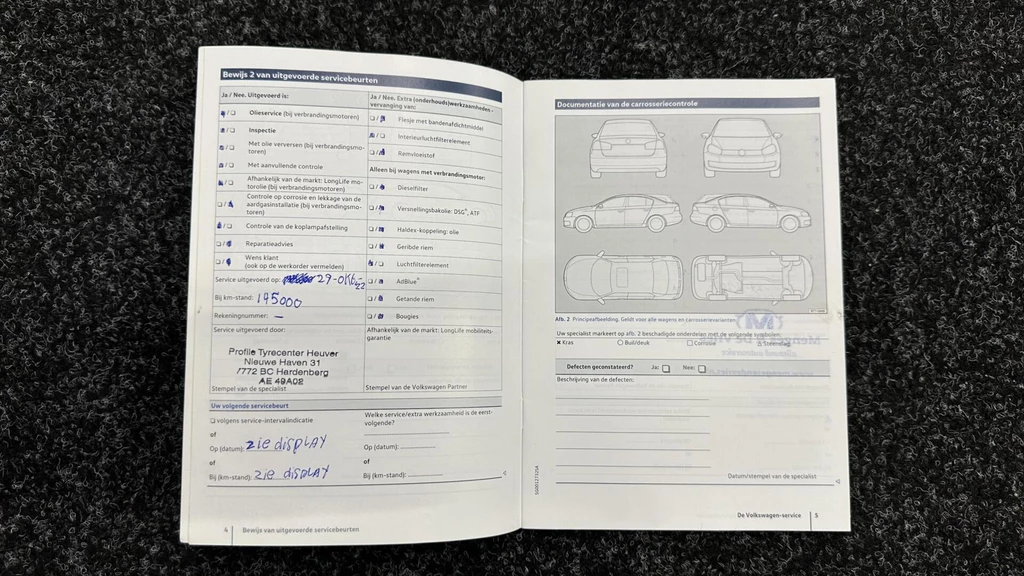 Bewijs 2 van uitgevoerde servicebeurten
Ja / Nee. Uitgevoerd is:
Olieservice (bij verbrandingsmotoren)
Inspectie
Met olie verversen (bij verbrandingsmo-
toren)
Met aanvullende controle
Afhankelijk van de markt: LongLife mo-
torolie (bij verbrandingsmotoren)
Controle op corrosie en lekkage van de
aardgasinstallatie (bij verbrandingsmo-
toren)
Controle van de koplampafstelling
Reparatieadvies
Wens klant
(ook op de werkorder vermelden)
Service uitgevoerd op: 29-okt-22
Bij km-stand: 195000
Rekeningnummer: —
Service uitgevoerd door:
Profile Tyrecenter Heuver
Nieuwe Haven 31
7772 BC Hardenberg
AE 49A02
Stempel van de specialist
Ja / Nee. Extra (onderhouds)werkzaamheden -
vervanging van:
Flesje met bandenafdichtmiddel
Interieurluchtfilterelement
Remvloeistof
Alleen bij wagens met verbrandingsmotor:
Dieselfilter
Versnellingsbakolie: DSG®, ATF
Haldex-koppeling: olie
Geribde riem
Luchtfilterelement
AdBlue®
Getande riem
Bougies
Afhankelijk van de markt: LongLife mobiliteits-
garantie
Stempel van de Volkswagen Partner
Uw volgende servicebeurt
volgens service-intervalindicatie
of
Op (datum): zie display
of
Bij (km-stand): zie display
Welke service/extra werkzaamheid is de eerst-
volgende?
Op (datum):
of
Bij (km-stand):
4 Bewijs van uitgevoerde servicebeurten
Documentatie van de carrosseriecontrole
Afb. 2 Principeafbeelding. Geldt voor alle wagens en carrosserievarianten.
Uw specialist markeert op afb. 2 beschadigde onderdelen met de volgende symbolen:
Kras
Buil/deuk
Corrosie
Steenslag
Defecten geconstateerd? Ja: Nee:
Beschrijving van de defecten:
Datum/stempel van de specialist
SG0012732SA
De Volkswagen-service 5